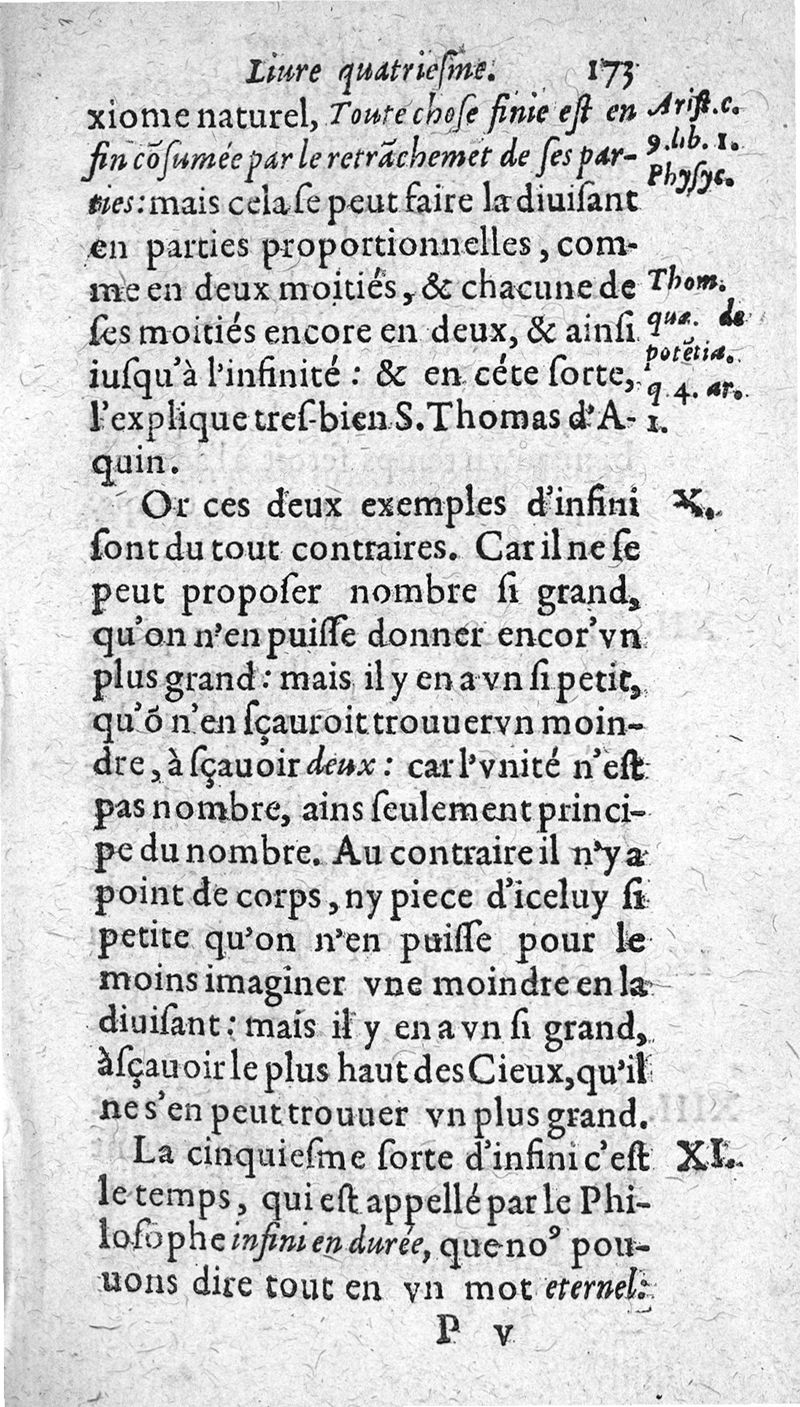 Liure quatrieſme. 173
xiome naturel, Toute choſe finie eſt en
fin cõſumée par le retrãchemẽt de ſes par-
ties: mais cela ſe peut faire la diuiſant
en parties proportionnelles, com-
me en deux moitiés, & chacune de
ſes moitiés encore en deux, & ainſi
iuſqu'à l'infinité: & en céte ſorte,
l'explique treſ-bien S. Thomas d'A-
quin.
Ariſt. c.
9. lib. 1.
Phyſyc.
Thom.
quæ. de
potẽtia.
q. 4. ar.
1.
Or ces deux exemples d'infini
ſont du tout contraires. Car il ne ſe
peut propoſer nombre ſi grand,
qu'on n'en puiſſe donner encor'vn
plus grand: mais il y en a vn ſi petit,
qu'õ n'en ſçauroit trouuer vn moin-
dre, à ſçauoir deux: car l'vnité n'eſt
pas nombre, ains ſeulement princi-
pe du nombre. Au contraire il n'y a
point de corps, ny piece d'iceluy ſi
petite qu'on n'en puiſſe pour le
moins imaginer vne moindre en la
diuiſant: mais il y en a vn ſi grand,
à ſçauoir le plus haut des Cieux, qu'il
ne s'en peut trouuer vn plus grand.
X.
La cinquieſme ſorte d'infini c'eſt
le temps, qui eſt appellé par le Phi-
loſophe infini en durée, que noꝰ pou-
uons dire tout en vn mot eternel:
XI.
P v